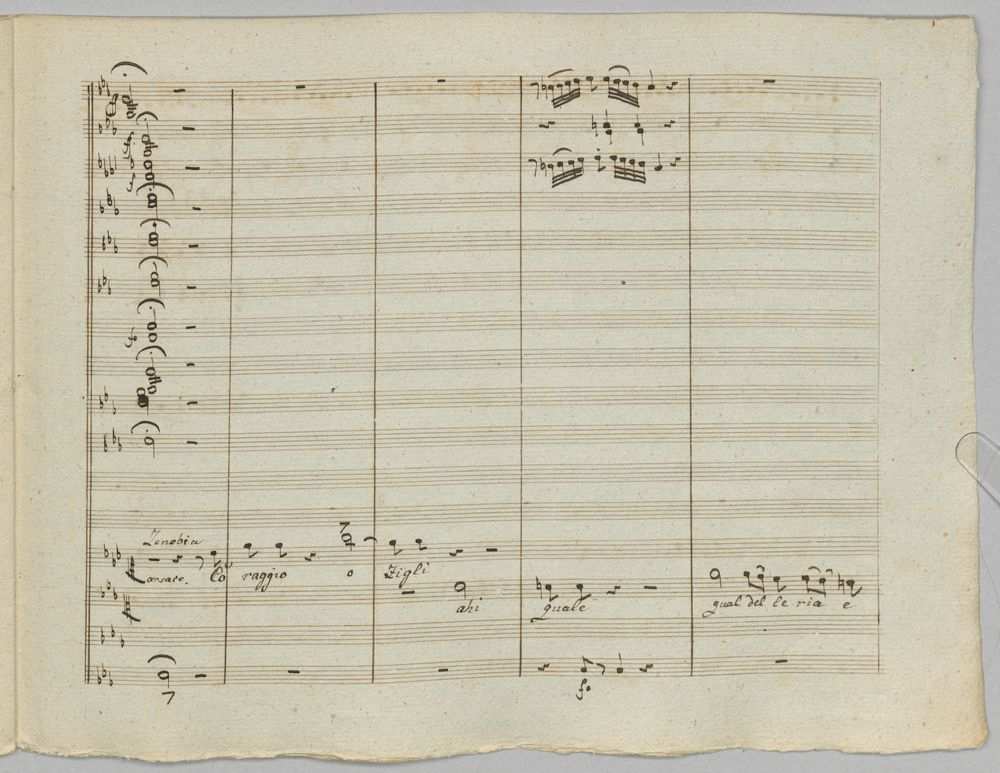 Zenobia
Co raggio o Zigli
ahi quale qual del le ria e
fo